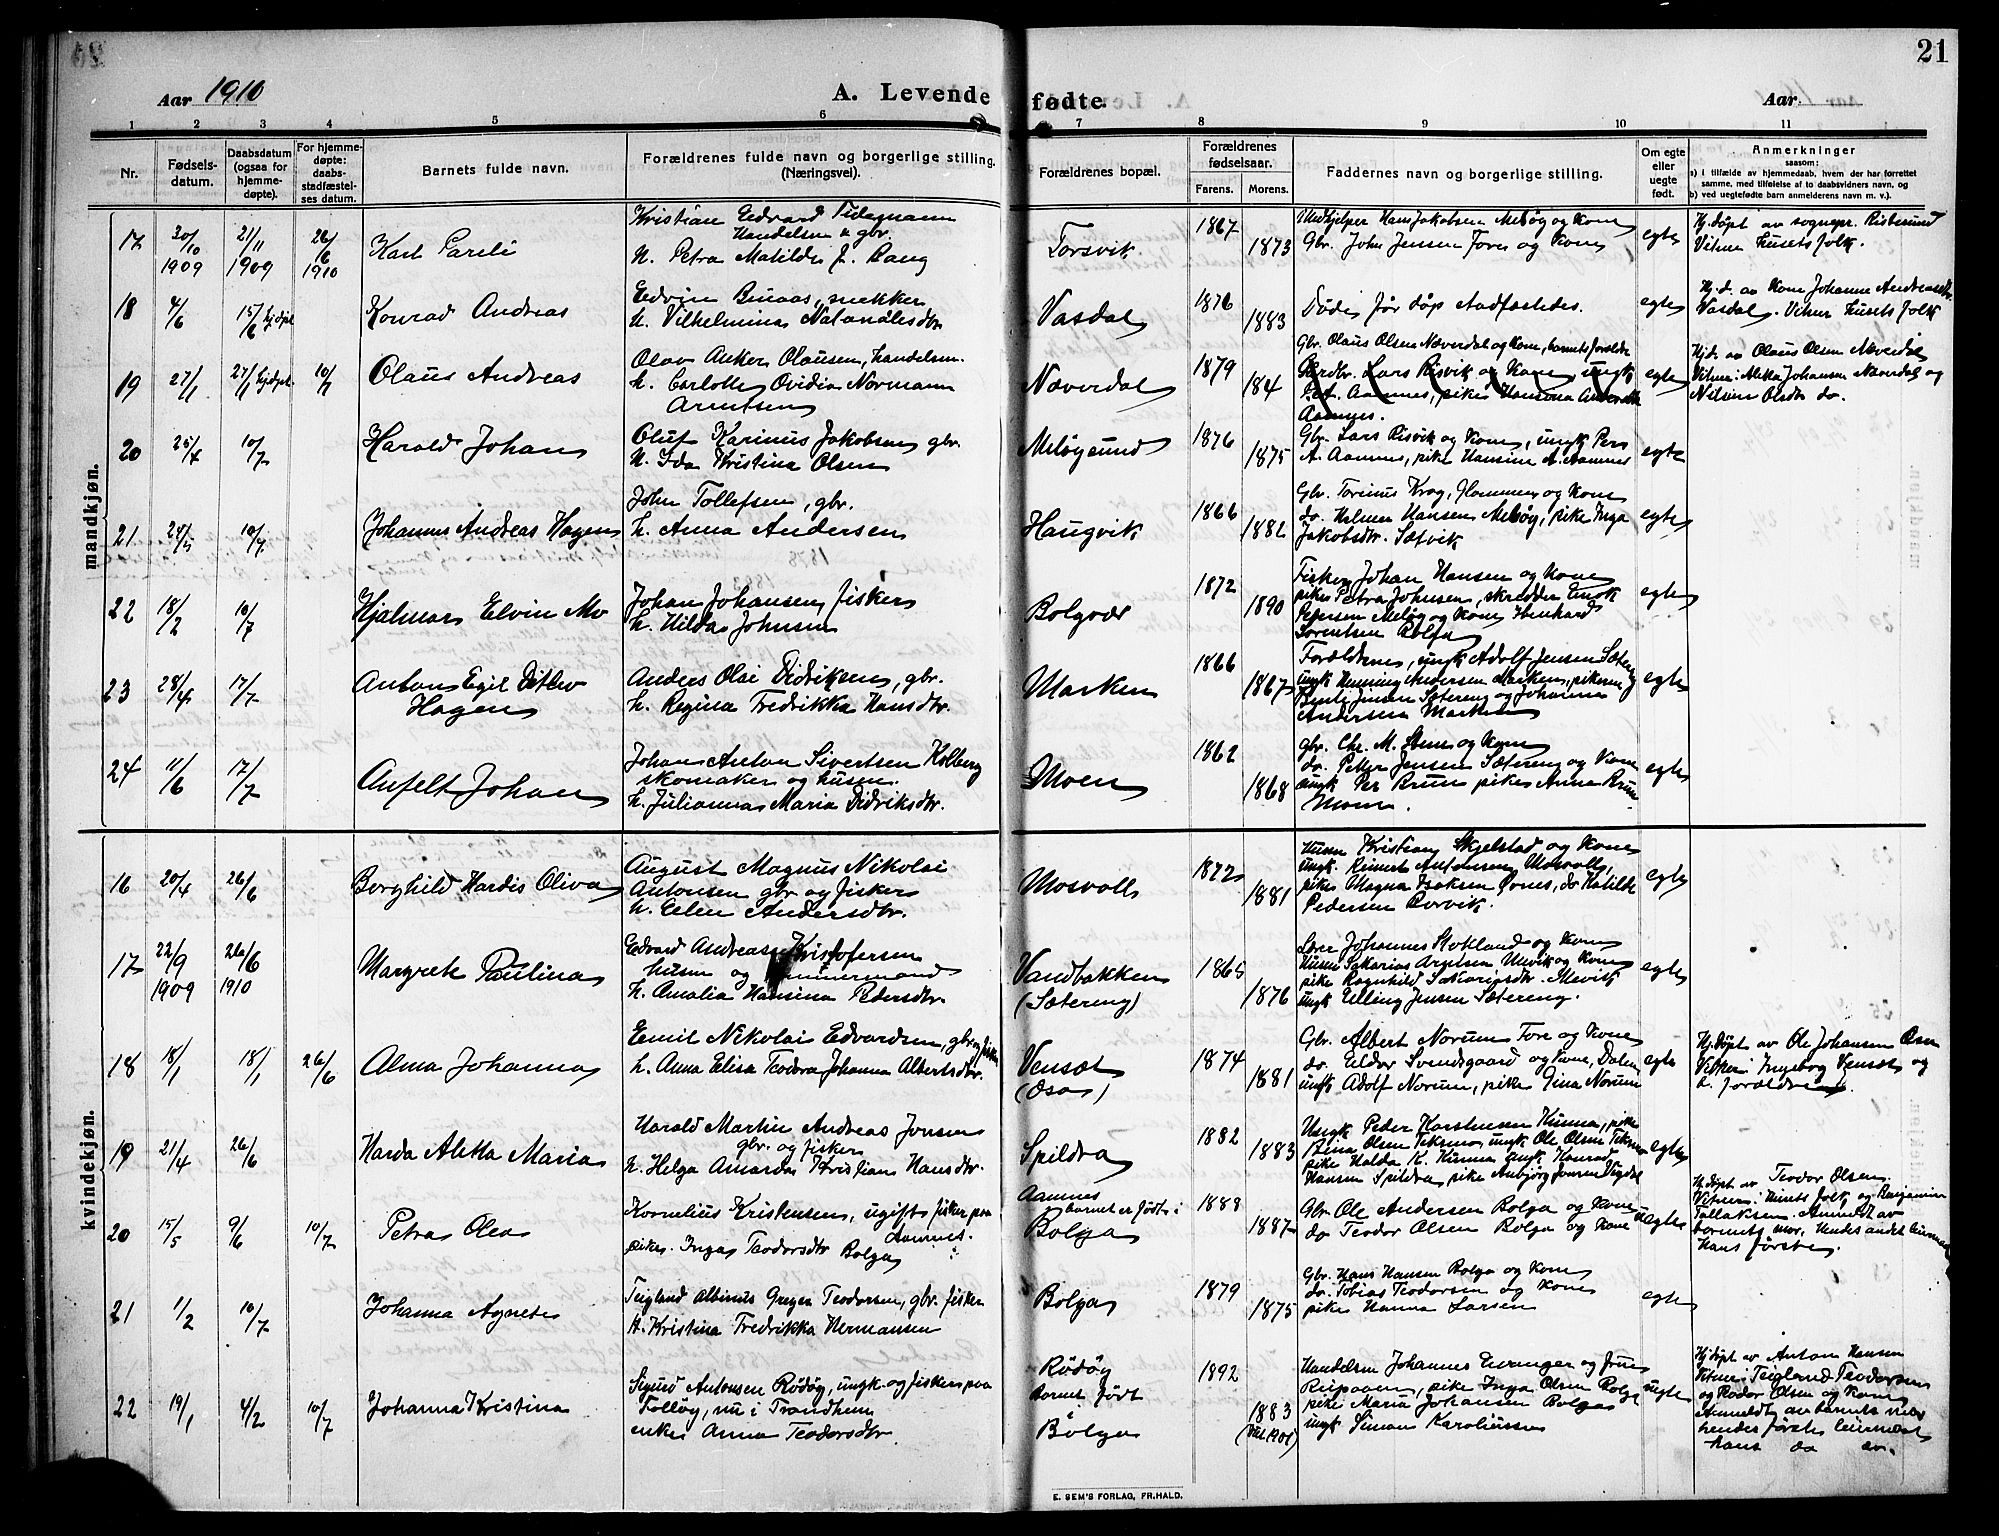 21
Aar 1910
A. Levende fødte.
Aar
1 2 3 4 5 6 7 8 9 10 11
Nr.
Fødsels-
datum.
Daabsdatum
(ogsaa for
hjemme-
døpte).
For hjemme-
døpte:
daabs-
stadfæstel-
ses datum.
Barnets fulde navn.
Forældrenes fulde navn og borgerlige stilling.
(Næringsvei).
Forældrenes bopæl.
Forældrenes
fødselsaar.
Farens. Morens.
Faddernes navn og borgerlige stilling.
Om egte
eller
uegte
født.
Anmerkninger
saasom:
a) i tilfælde av hjemmedaab, hvem der har forrettet
samme, med tilføielse af to daabsvidners navn, og
b) ved uegtefødte barn anmelderens navn m. v.).
mandkjøn.
17 20/10 1909 21/11 1909 26/6 1910 Karl Pareli
Kristian Edvard Tidemann
Handelsm & gbr.
H. Petra Matilde J. Bang
Torsvik 1867 1873
Hans Jakobsen Meløy og Kone
Gbr. John Jensen Fore og Kone
egte
Hj.døpt av sognepr.
Vitner Husets folk.
18 4/6 15/6 hj.døpt Konrad Andreas
Edvin Buaas, snekker
H. Vilhelmina Natanælsdtr
Vasdal 1876 1883
Døde før døp stadfæstedes.
egte
Hj.d. av Kone Johanne Andreasdtr.
Vasdal. Vitner Husets folk
19 27/1 27/1 hj.døpt 10/7 Olaus Andreas
Olav Anker Olausen, handelsm.
H. Carlotte Ovidia Normann
Arntsen
Næverdal 1879 184
Gbr. Olaus Olsen Næverdal og Kone, barnets forældre
Lars Risvik og Kone, ungk
P. A. Aamnes, pike Hansina Andersdtr
Aamnes.
egte
Hj.d. av Olaus Olsen Næverdal
Vitner: Alette Johansen Næverdal og
Nilsine Olsdtr do.
20 25/4 10/7 Harald Johan
Oluf Karinus Jakobsen gbr.
H. Ida Kristina Olsen
Meløysund 1876 1875
Gbr. Lars Risvik og Kone, ungk Pers
A. Aamnes, pike Hansine A. Aamnes
egte
21 24/5 10/7 Johannes Andreas Hagen
John Tollefsen, gbr.
H. Anna Andersen
Haugvik 1866 1882
Gbr. Torinus Krog, Flommen og Kone
do. Helmer Hansen Meløy, pike Inga
Jakobsdtr. Sætvik
egte
22 18/2 10/7 Hjalmar Elvin Mo
Johan Johansen, fisker
H. Hilda Johnsen
Bolgvær 1872 1890
Fisker Johan Hansen og Kone
pike Petra Johnsen, skredder Enok
Pedersen Meløy og Kone
Sørentsen Bolga
egte
23 28/4 17/7 Anton Egil Ditlev
Hagen
Anders Olai Didriksen, gbr.
H. Regina Fredrikka Hansdtr.
Marken 1866 1867
Forældrene, ungk Adolf Jensen Sætereng
ungk Henning Andersen Marken, pikerne
Jensen Sætereng og Johanna
Andersen Marken
egte
24 11/6 17/7 Anfelt Johan
Johan Anton Sivertsen Kolberg
skomaker og husm.
H. Julianna Maria Didriksdtr.
Moen 1862 1868
gbr. Chr. M. Stene og Kone
do. Petter Jensen Sætereng og Kone
ungk Per Bruun pike Anna Bruun
Moen.
egte
kvindekjøn.
16 20/4 26/6 Borghild Hardis Oliva
August Magnus Nikolai
Antonsen gbr og fisker
H. Elen Andersdtr.
Mosvoll 1872 1881
Husm Kristian Skjelstad og Kone
ungk. Reinert Antonsen Mosvoll,
pike Magna Isaksen Ørnes, do Matilde
Pedersen Borvik.
egte
17 22/9 1909 26/6 1910 Margrete Paulina
Edvard Andreas Kristofersen
Husm og tømmermand
H. Amalia Hansina Pedersdtr.
Vandbakken
(Sætereng) 1865 1876
Lærer Johannes Stokland og Kone
Husm Sakarias Arntsen Mevik og Kone
pike Ragnhild Sakariasdtr. Mevik
ungk Elling Jensen Sætereng.
egte
18 18/1 18/1 26/6 Alma Johanna
Emil Nikolai Edvardsen, gbr og fisker
H. Anna Elisa Teodora Johanna Albertsdtr.
Vensæt
(Øsa) 1874 1881
Gbr. Albert Norum Fore og Kone
do. Eldor Svendsgaard og Kone, Dalen
ungk Adolf Norum, pike Gina Norum
egte
Hj.døpt av Ole Johansen Øsen
Vitner: Ingeborg Vensæt og
forældrene.
19 21/4 26/6 Harda Aletta Maria
Harald Martin Andreas Jensen
gbr. og fisker
H. Helga Amanda Kristian Hansdtr.
Spildra 1882 1883
Ungk Peder Karstensen Kunna, pike
Olsen Teksmo, ungk Ole Olsen Teksmo
pike Halda K. Kunna ungk Konrad
Hansen Spildra, pike Anbjørg Jensen
egte
20 15/5 9/6 10/7 Petra Olea
Kornelius Kristensen, ugift fisker paa
Aamnes.
pike Inga Teodorsdtr Bolga
Aamnes
barnet er født i
Bolga 1888 1887
Gbr Ole Andersen Bolga og Kone
do Teodor Olsen Bolga og Kone
uegte
Hj.døpt av Teodor Olsen.
Vitner: Husets folk og Benjamin
Tollaksen. Anmeldt av
barnets mor. Hendes andet leiermaal
Hans første.
21 11/2 10/7 Johanna Agnete
Teigland Albinus Greger Teodorsen, gbr. fisker
H. Kristina Fredrikka Hermansen
Bolga 1879 1875
Gbr. Hans Hansen Bolga og Kone
do. Tobias Teodorsen og Kone
pike Hanna Larsen
egte
22 19/1 4/2 10/7 Johanna Kristina
Sigurd Antonsen Rødøy, ungk. og fisker paa
Tolløy, nu i Trondhem
enke Anna Teodorsdtr.
Rødøy
Barnet født
Bolga 1892 1883
Handelsm Johannes Evanger og frue
Reipaaen, pike Inga Olsen Bolga
pike Maria Johansen Bolga
ungk Simon Karoliussen
uegte
Hj.døpt av Anton Hansen
Vitner: Teigland Teodorsen
og Peder Olsen og Kone
Anmeldt av barnets mor
hendes første leiermaal
hans do do.
E. SEM'S FORLAG, FR.HALD.